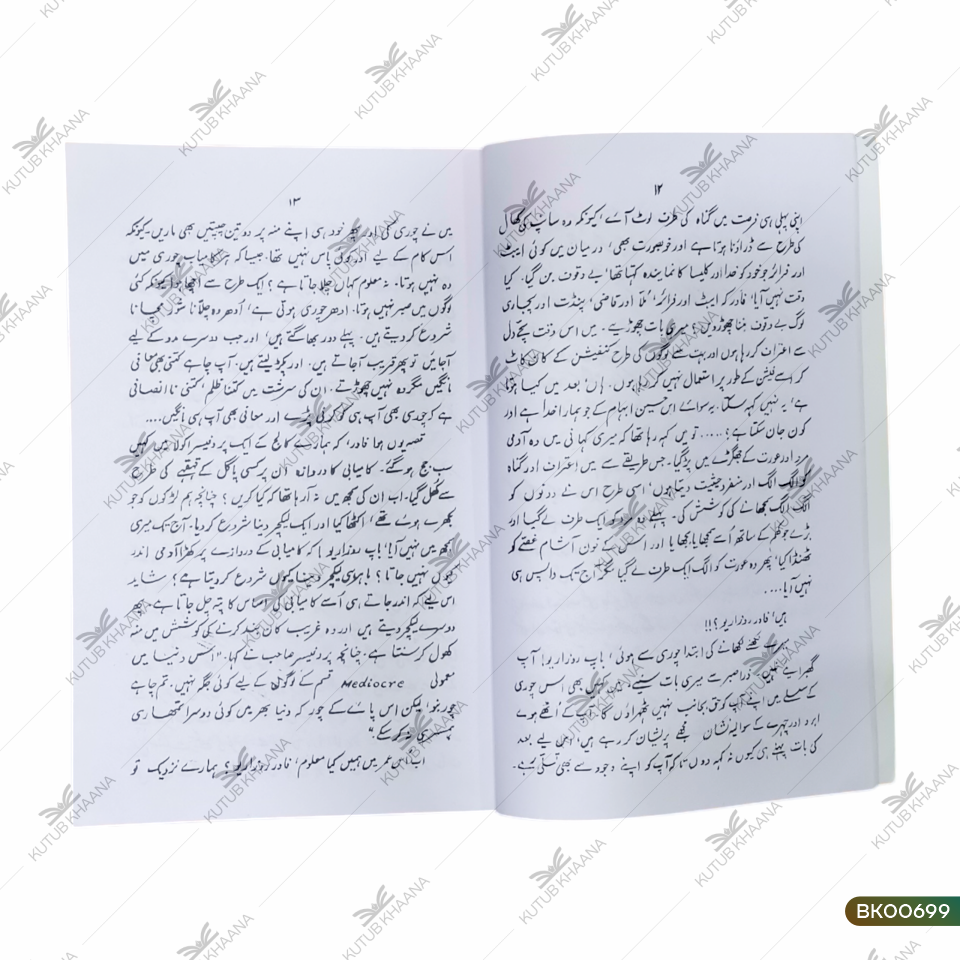 ۱۲
اپنی پہلی ہی فرصت میں گناہ کی طرف لوٹ آئے، کیونکہ وہ سانپ کی کھال
کی طرح سے ڈراؤنا ہوتا ہے اور خوبصورت بھی، درمیان میں کوئی ایبٹ
اور فرائر جو خود کو خدا اور کلیسا کا نمائندہ کہتا تھا، بے وقوف بن گیا۔ کیا
وقت نہیں آیا، فادر کہ ایبٹ اور فرائر، مُلّا اور قاضی، پنڈت اور پجباری
لوگ بے وقوف بننا چھوڑ دیں؟ میری بات چھوڑیے۔ میں اس وقت سچے دل
سے اعتراف کر رہا ہوں اور بہت سے لوگوں کی طرح کنفیشن کے کان کاٹ
کر اسے فیشن کے طور پر استعمال نہیں کر رہا ہوں۔ ہاں، بعد میں کیسا ہوتا
ہے، یہ نہیں کہہ سکتا۔ یہ سوائے اس حسین ابہام کے جو ہمارا خدا ہے اور
کون جان سکتا ہے؟ ..... تو میں کہہ رہا تھا کہ میری کہانی میں وہ آدمی
مرد اور عورت کے جھگڑے میں پڑ گیا۔ جس طریقے سے میں اعتراف اور گناہ
کو الگ الگ اور منفرد حیثیت دیتا ہوں، اسی طرح اس نے دونوں کو
الگ الگ سمجھانے کی کوشش کی۔ پہلے وہ مرد کو ایک طرف لے گیا اور
بڑے تحکم کے ساتھ اُسے سمجھایا بجھایا اور اس کے خون آشام غصے کو
ٹھنڈا کیا، پھر وہ عورت کو الگ ایک طرف لے گیا مگر آج تک واپس ہی
نہیں آیا....
ہیں، فادر روزاریو؟!!
میرے لکھنے لکھانے کی ابتدا چوری سے ہوئی، باپ روزاریو! آپ
گھبرائے نہیں۔ ذرا صبر سے میری بات سنیے، میں کہیں بھی اس چوری
کے سلسلے میں اپنے آپ کو حق بجانب نہیں ٹھہراؤں گا۔ آپ کے اُٹھے ہوئے
ابرو اور چہرے کے سوالیہ نشان مجھے پریشان کر رہے ہیں، اسی لیے بعد
کی بات پہلے ہی کیوں نہ کہہ دوں تاکہ آپ کو اپنے وجود سے بھی تسلی رہے۔
۱۳
میں نے چوری کی اور پھر خود ہی اپنے منہ پر دو تین چپتیں بھی ماریں۔ کیونکہ
اس کام کے لیے اور کوئی پاس نہیں تھا۔ جیسا کہ ہر کامیاب چوری میں
وہ نہیں ہوتا۔ نہ معلوم کہاں چلا جاتا ہے؟ ایک طرح سے اچھا ہوا کیونکہ کئی
لوگوں میں صبر نہیں ہوتا۔ ادھر چوری ہوتی ہے، اُدھر وہ چِلّانا شور مچانا
شروع کر دیتے ہیں۔ پہلے دور بھاگتے ہیں، اور جب دوسرے مدد کے لیے
آجائیں تو پھر قریب آجاتے ہیں۔ اور پکڑ لیتے ہیں۔ آپ چاہے کتنی بھی معافی
مانگیں مگر وہ نہیں چھوڑتے۔ ان کی سرشت میں کتنا ظلم، کتنی ناانصافی
ہے کہ چوری بھی آپ ہی کو کرنی پڑے اور معافی بھی آپ ہی مانگیں....
قصہ یوں ہوا فادر، کہ ہمارے کالج کے ایک پروفیسر اکولا میں کہیں
سب جج ہو گئے۔ کامیابی کا دروازہ اُن پر کسی پاگل کے قہقہے کی طرح
سے کُھل گیا۔ اب ان کی سمجھ میں نہ آ رہا تھا کہ کیا کریں؟ چنانچہ ہم لڑکوں کو جو
بکھرے ہوئے تھے، اکٹھا کیا اور ایک لیکچر دینا شروع کر دیا۔ آج تک میری
سمجھ میں نہیں آیا، باپ روزاریو! کہ کامیابی کے دروازے پر کھڑا آدمی اندر
کیوں نہیں جاتا؟ باہر ہی لیکچر دینا کیوں شروع کر دیتا ہے؟ شاید
اس لیے کہ اندر جاتے ہی اُسے کامیابی کی اساس کا پتہ چل جاتا ہے۔ پھر
دوسرے لیکچر دیتے ہیں اور وہ غریب کان بند کرنے کی کوشش میں منہ
کھول کر سنتا ہے۔ چنانچہ پروفیسر صاحب نے کہا۔ "اس دنیا میں
معمولی Mediocre قسم کے لوگوں کے لیے کوئی جگہ نہیں۔ تم چاہے
چور بنو، لیکن اس پائے کے چور کہ دنیا بھر میں کوئی دوسرا تمھاری
ہمسری نہ کر سکے۔"
اب اس عمر میں ہمیں کیا معلوم، فادر روزاریو؟ ہمارے نزدیک تو
KUTUB KHAANA
BK00699